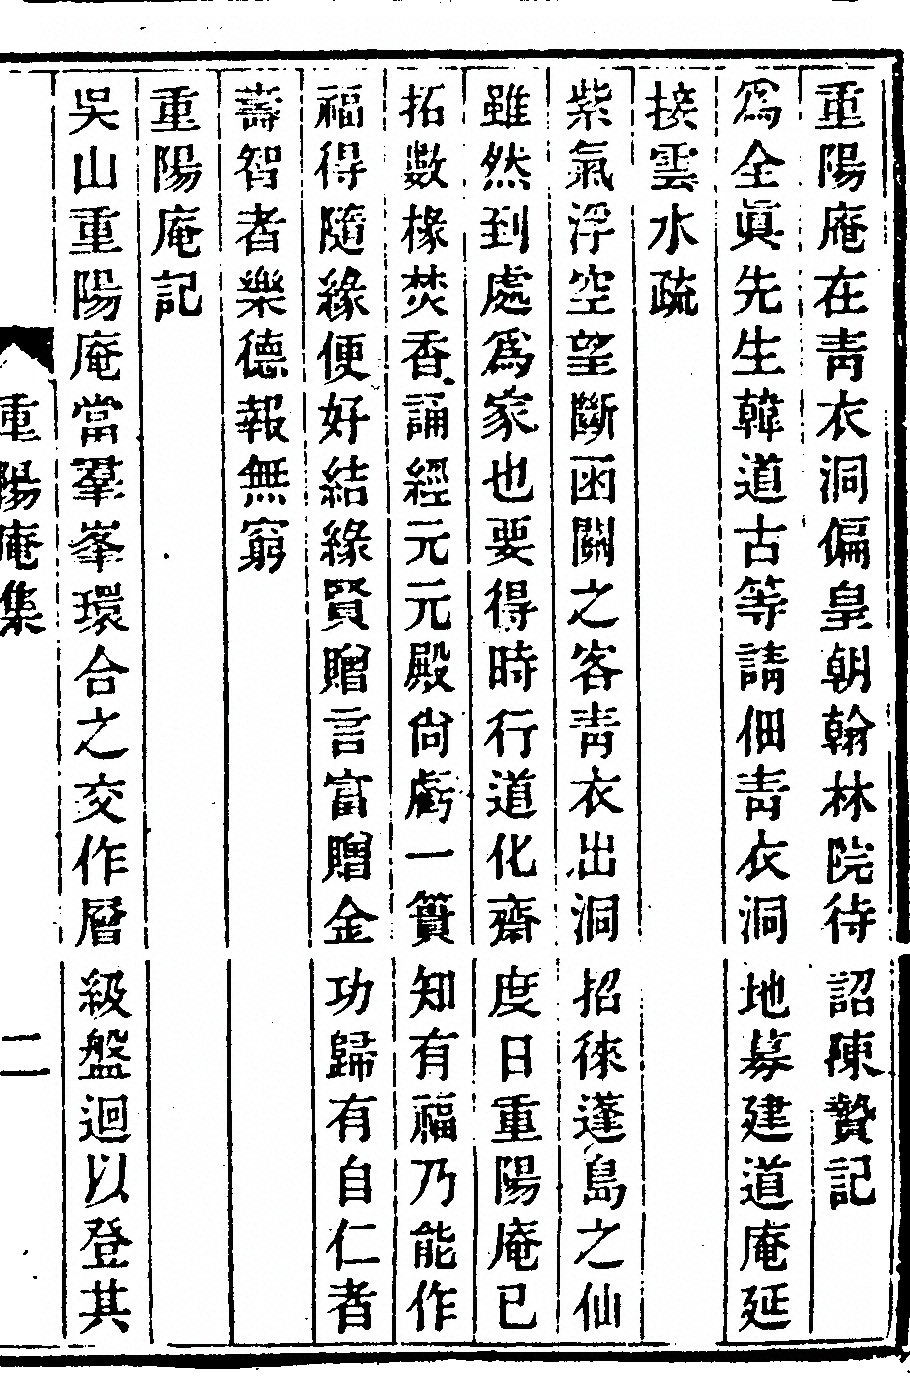 重陽庵在青衣洞偏皇朝翰林院待詔陳贄記
爲全眞先生韓道古等請佃青衣洞地募建道庵延
接雲水疏
紫氣浮空望斷函關之客青衣出洞招徠蓬島之仙
雖然到處爲家也要得時行道化齋度日重陽庵已
拓數椽焚香誦經元元殿尙虧一簣知有福乃能作
福得隨緣便好結緣賢贈言富贈金功歸有自仁者
壽智者樂德報無窮
重陽庵記
吳山重陽庵當羣峯環合之交作層級盤迴以登其
重陽庵集
二